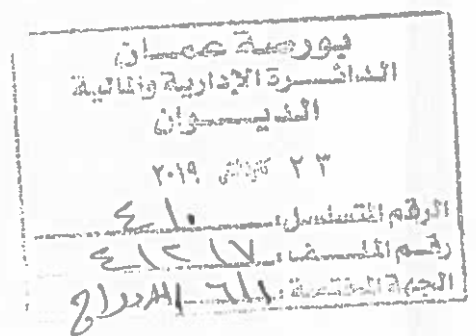 بورصة عمان
الدائرة الإدارية والمالية
الديوان
٢٣ ٢٠١٩
الرقم المتسلسل: ٤١٠
رقم الملف: ٤١٢١٧
الجهة المختصة: الادراج